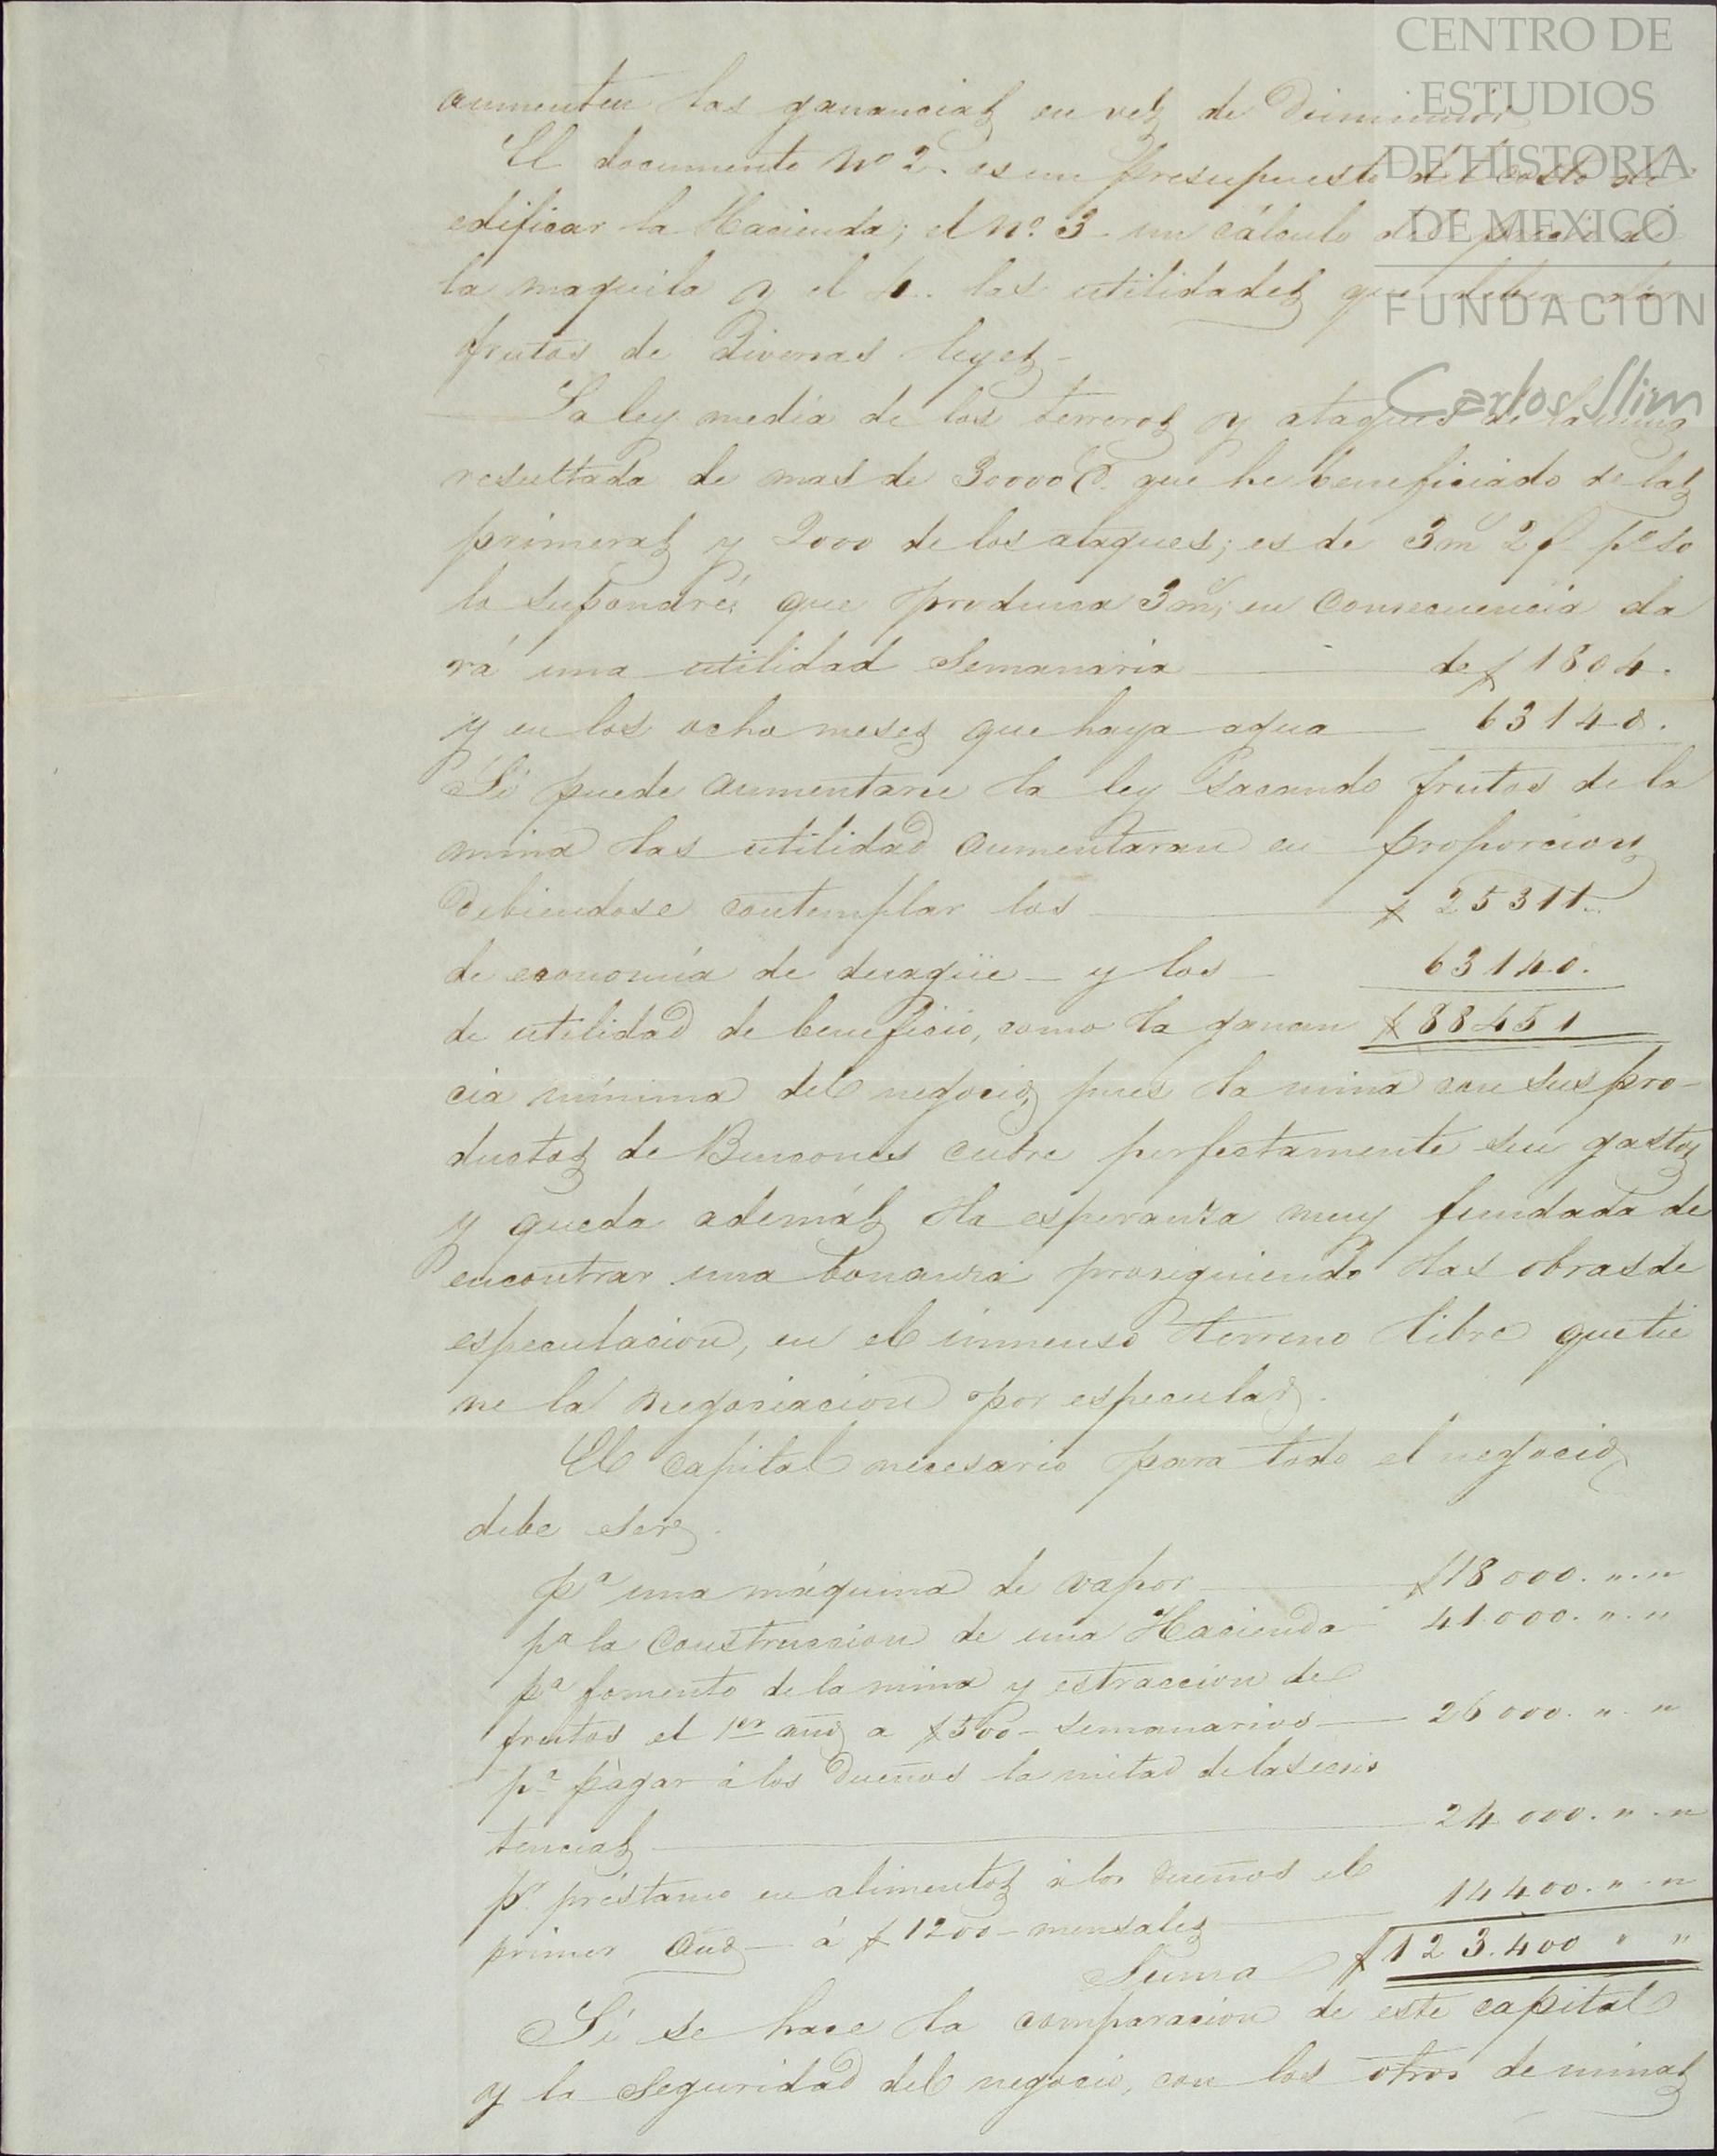 CENTRO DE
ESTUDIOS
DE HISTORIA
DE MEXICO
FUNDACION
Carlos Slim
aumenten las ganancias en vez de Disminuir
El documento Nº 2. es un presupuesto del costo de
edificar la Hacienda; el Nº. 3 un cálculo del precio de
la maquila y el 4. las utilidades que deben dar
frutos de Diversas leyes
La ley media de los terreros y ataques de la mina
resultada de mas de 30000 que he beneficiado de las
primeras y 2000 de los ataques; es de 3m 2 pº so
lo supondré que produzca 3m; en consecuencia da
rá una utilidad semanaria de $ 1804.
y en los ocho meses que haya agua 63140.
Si puede aumentarse la ley sacando frutos de la
mina las utilidad aumentaran en proporcion
debiendose contemplar los $ 25311
de economía de desagüe y los 63140.
de utilidad de beneficio, como la ganan $ 88451
cia mínima del negocio, pues la mina con sus pro-
ductos de Buscones cubre perfectamente sus gastos
y queda además la esperanza muy fundada de
encontrar una bonanza prosiguiendo las obras de
especulacion, en el inmenso terreno libre que tie
ne la negociacion por especular.
El capital necesario para todo el negocio
debe ser
pª una máquina de vapor $ 18000. " . "
pª la Construccion de una Hacienda 41000. " . "
pª fomento de la mina y estraccion de
frutos el 1er año a $ 500 - semanarios 26000. " . "
pª pagar á los Dueños la mitad de las ecsis
tencias 24000. " . "
pª préstamo en alimentos á los Dueños el
primer año á $ 1200 - mensales 14400. " . "
Suma $ 123.400 " "
Si se hace la comparacion de este capital
y la seguridad del negocio, con los otros de minas